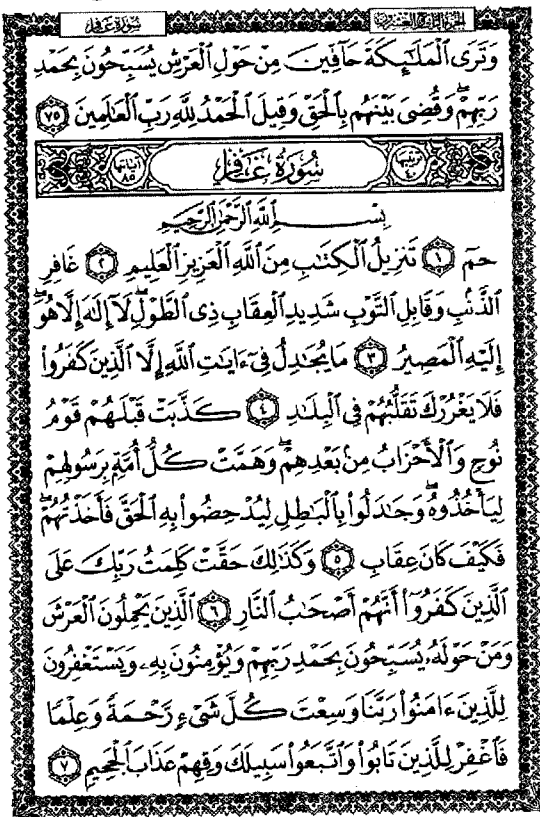 سُورَةُ غَافِرٍ الجزء الرابع والعشرون
وَتَرَى الْمَلَٰٓئِكَةَ حَآفِّينَ مِنْ حَوْلِ الْعَرْشِ يُسَبِّحُونَ بِحَمْدِ
رَبِّهِمْ ۖ وَقُضِيَ بَيْنَهُم بِالْحَقِّ وَقِيلَ الْحَمْدُ لِلَّهِ رَبِّ الْعَالَمِينَ ٧٥
ترتيبها ٤٠ سُورَةُ غَافِرٍ آياتها ٨٥
بِسْمِ اللَّهِ الرَّحْمَٰنِ الرَّحِيمِ
حمٓ ١ تَنزِيلُ الْكِتَابِ مِنَ اللَّهِ الْعَزِيزِ الْعَلِيمِ ٢ غَافِرِ
الذَّنۢبِ وَقَابِلِ التَّوْبِ شَدِيدِ الْعِقَابِ ذِي الطَّوْلِ ۖ لَآ إِلَٰهَ إِلَّا هُوَ ۖ
إِلَيْهِ الْمَصِيرُ ٣ مَا يُجَادِلُ فِيٓ ءَايَاتِ اللَّهِ إِلَّا الَّذِينَ كَفَرُوا۟
فَلَا يَغْرُرْكَ تَقَلُّبُهُمْ فِي الْبِلَادِ ٤ كَذَّبَتْ قَبْلَهُمْ قَوْمُ
نُوحٍ وَالْأَحْزَابُ مِنۢ بَعْدِهِمْ ۖ وَهَمَّتْ كُلُّ أُمَّةٍۭ بِرَسُولِهِمْ
لِيَأْخُذُوهُ ۖ وَجَادَلُوا۟ بِالْبَاطِلِ لِيُدْحِضُوا۟ بِهِ الْحَقَّ فَأَخَذْتُهُمْ ۖ
فَكَيْفَ كَانَ عِقَابِ ٥ وَكَذَٰلِكَ حَقَّتْ كَلِمَتُ رَبِّكَ عَلَى
الَّذِينَ كَفَرُوٓا۟ أَنَّهُمْ أَصْحَابُ النَّارِ ٦ الَّذِينَ يَحْمِلُونَ الْعَرْشَ
وَمَنْ حَوْلَهُۥ يُسَبِّحُونَ بِحَمْدِ رَبِّهِمْ وَيُؤْمِنُونَ بِهِۦ وَيَسْتَغْفِرُونَ
لِلَّذِينَ ءَامَنُوا۟ رَبَّنَا وَسِعْتَ كُلَّ شَيْءٍ رَّحْمَةً وَعِلْمًا
فَاغْفِرْ لِلَّذِينَ تَابُوا۟ وَاتَّبَعُوا۟ سَبِيلَكَ وَقِهِمْ عَذَابَ الْجَحِيمِ ٧